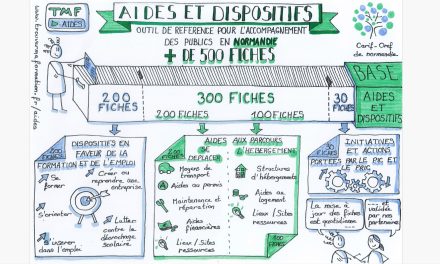 TMF
→ AIDES
www.trouvermaformation.fr/aides
AIDES ET DISPOSITIFS
OUTIL DE REFERENCE POUR L'ACCOMPAGNEMENT
DES PUBLICS EN NORMANDIE
+ DE 500 FICHES
Carif-Oref
de normandie
BASE
AIDES
ET
DISPOSITIFS
200
FICHES
300 FICHES
200 FICHES
100 FICHES
30
FICHES
200
FICHES
DISPOSITIFS EN
FAVEUR DE LA
FORMATION ET DE L'EMPLOI
Se
former
Créer ou
reprendre une
entreprise
S'orienter
Lutter
contre le
décrochage
scolaire
S'insérer
dans l'emploi
200
FICHES
AIDES AUX PARCOURS
SE
DEPLACER
HEBERGEMENT
Moyens de
transport
Aides au permis
Maintenance et
réparation
Aides
financières
Lieux / Sites
ressources
Structures
d'hébergements
Aides au
logement
Lieux / Sites
ressources
100
FICHES
30
FICHES
INITIATIVES
ET ACTIONS
PORTEES PAR LE PIC ET
LE PRIC
La mise à
jour des fiches
est quotidienne
et
validée
par nos
partenaires